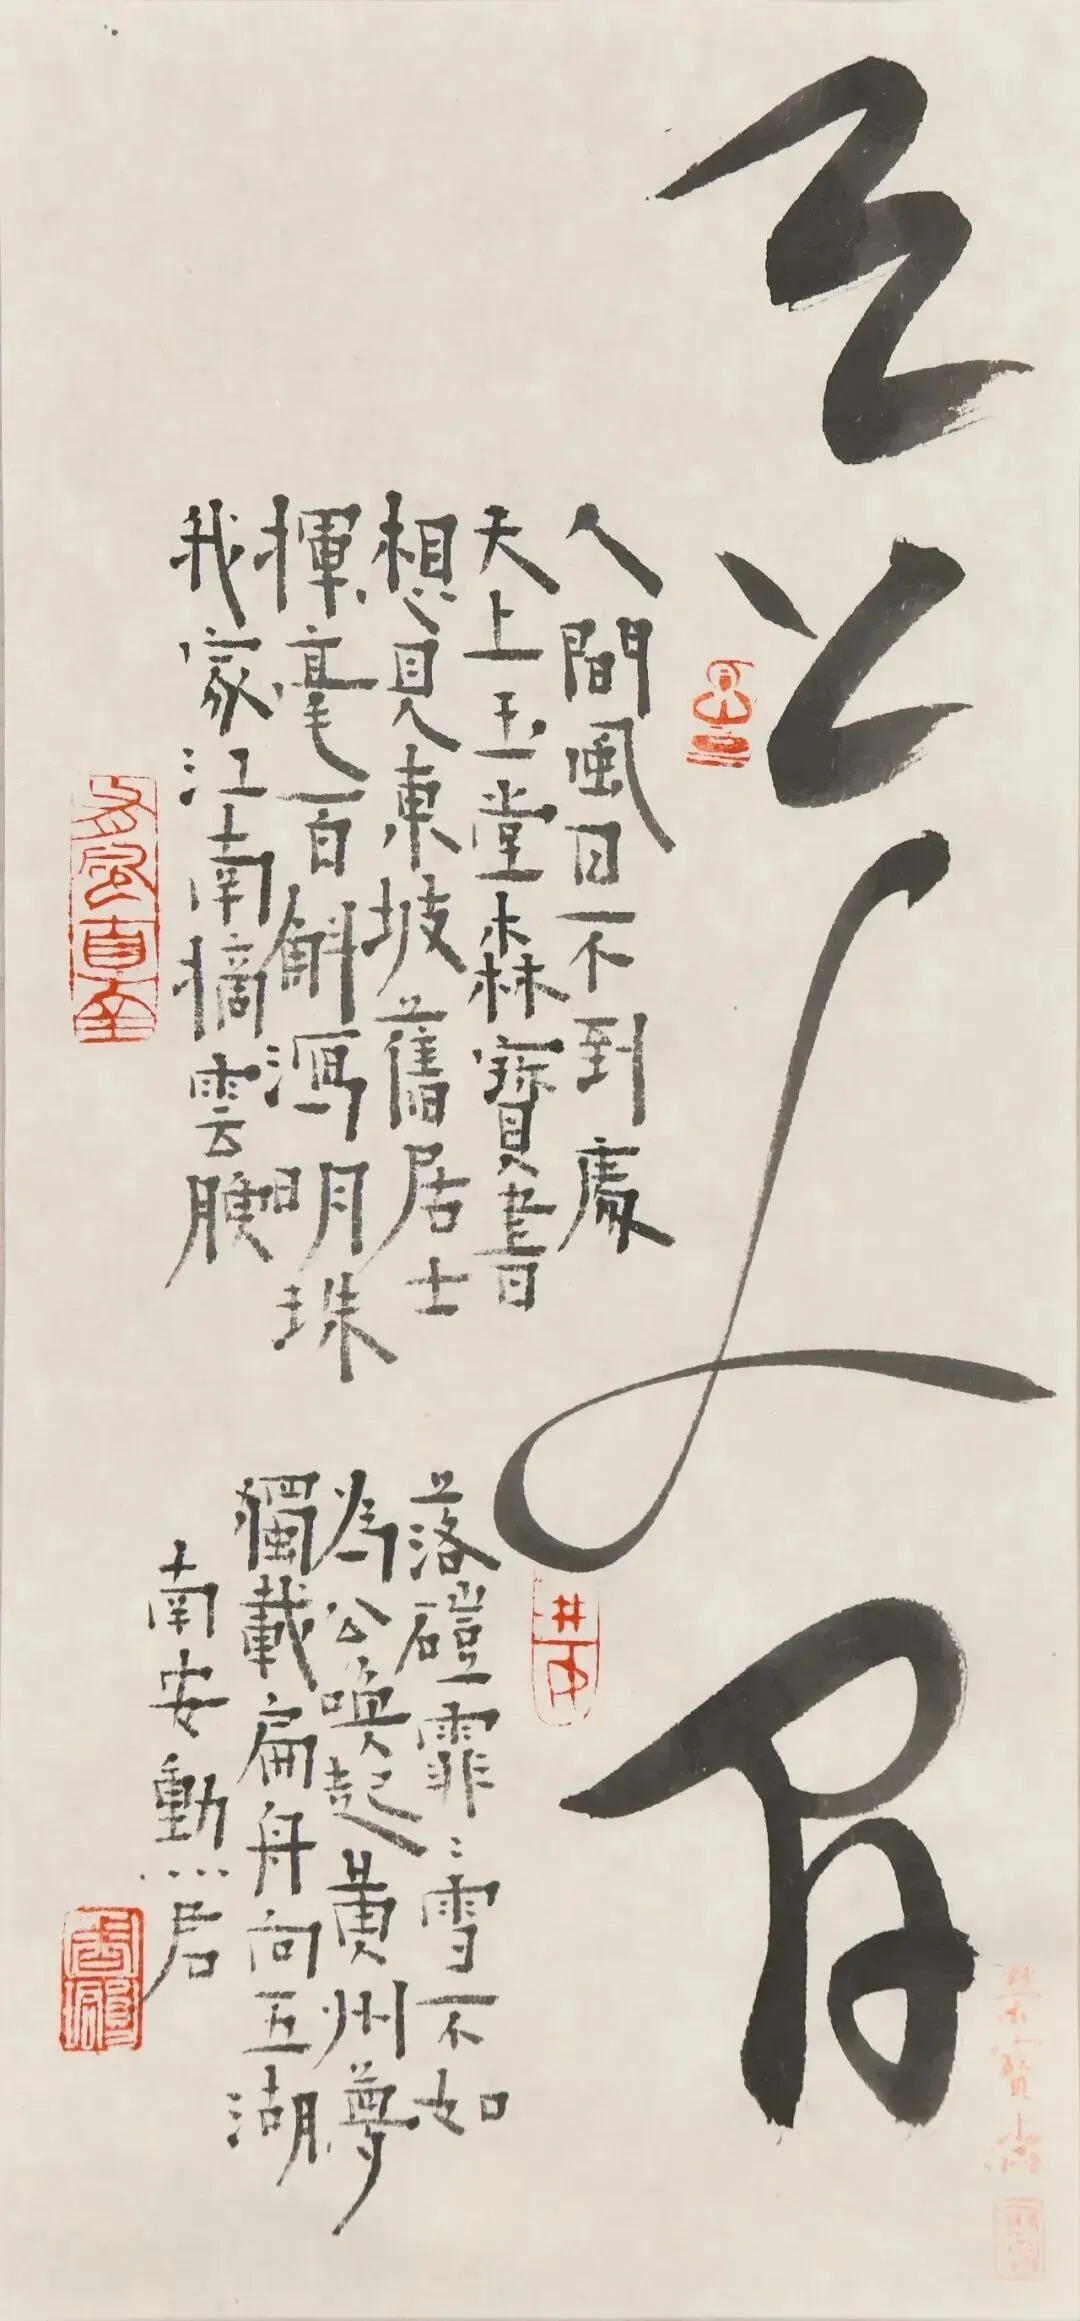 人間風日不到處
天上玉堂森寶書
想見東坡舊居士
揮毫百斛瀉明珠
我家江南摘雲腴
落磑霏〻雪不如
為公喚起黃州夢
獨載扁舟向五湖
南安勳居
榮寶齋